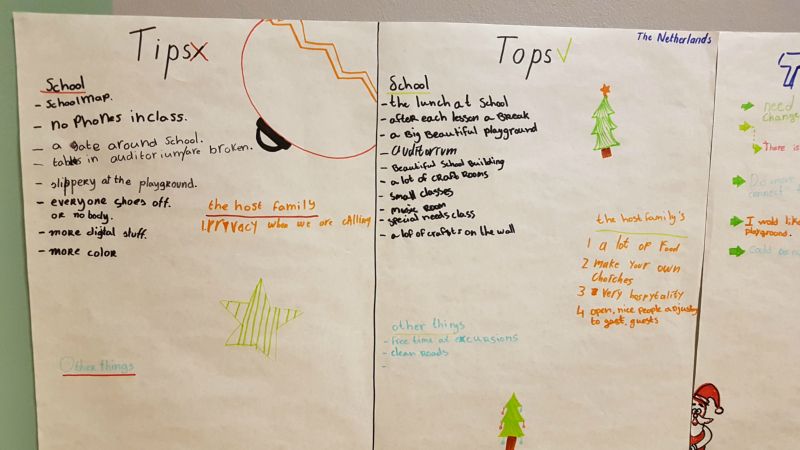 Tips x
School
- school map.
- no phones in class.
- a gate around school.
- tables in auditorium/are broken.
- slippery at the playground.
- everyone shoes off.
or no body.
- more digital stuff.
- more color
the host family
1. privacy when we are calling
Other things
Tops ✓
The Netherlands
School
- the lunch at School
- after each lesson a Break
- a Big Beautiful playground
- auditorium
- Beautiful School Building
- a lot of craft Rooms
- small classes
- music Room
- special needs class
- a lot of crafts on the wall
the host family's
1 a lot of food
2 make your own
choiches
3 very hospytality
4 open, nice people adjusting
to gast, guests
other things
- free time at excursions
- clean Roads
-
need
change
There is
Did more
connect
I would like
playground.
Could be